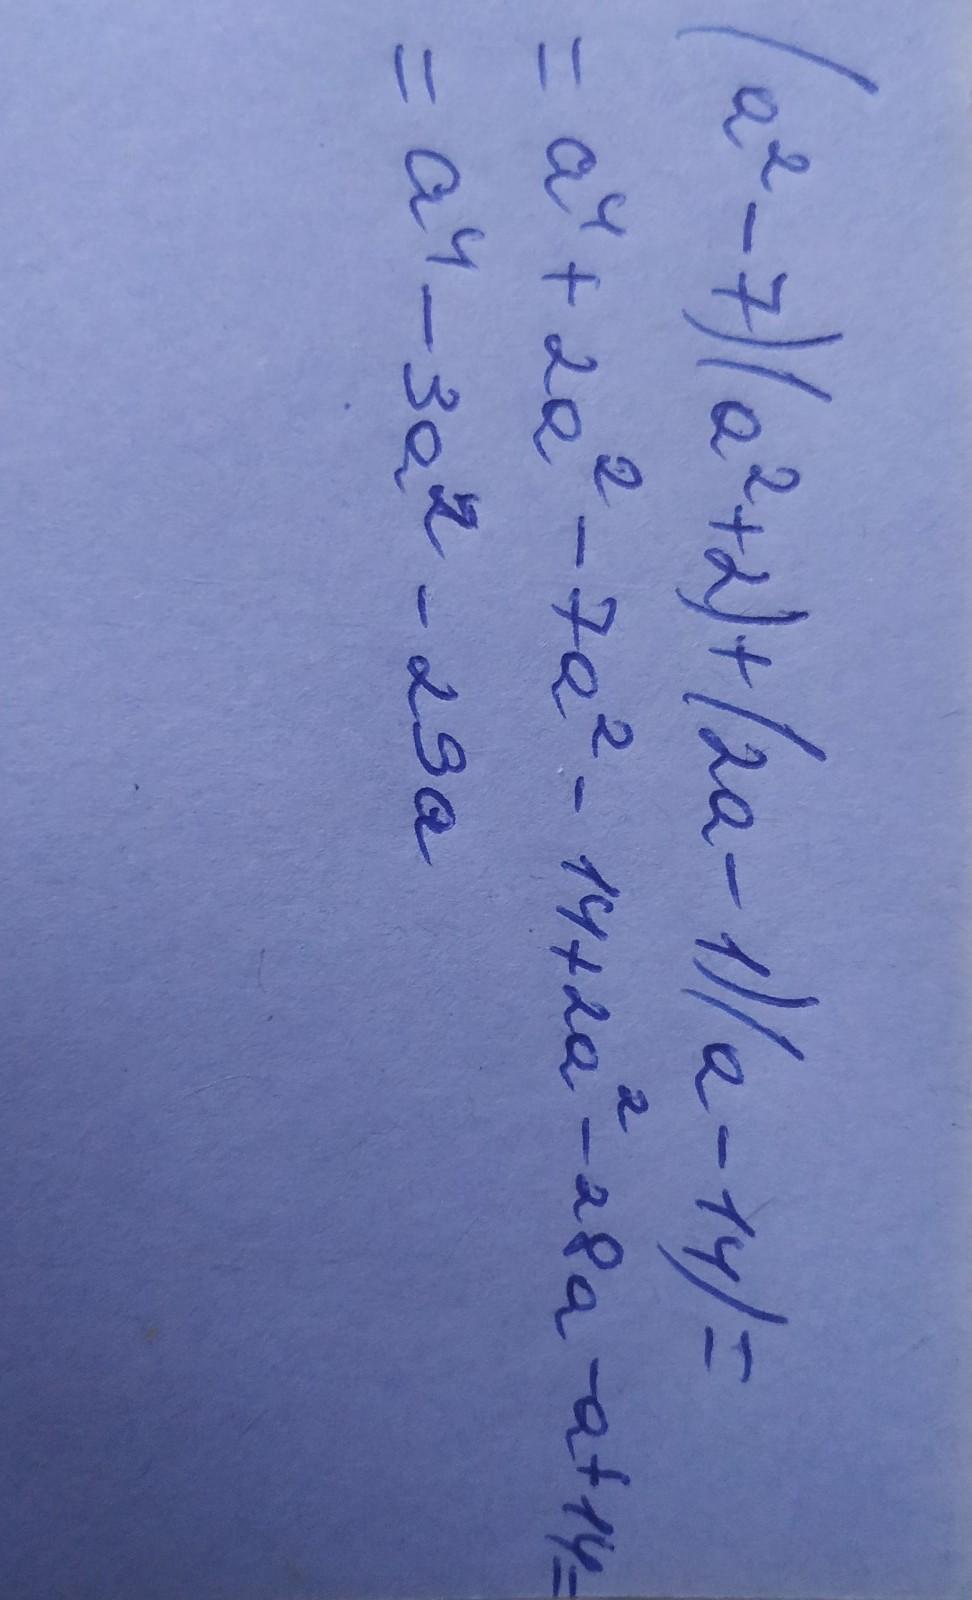 (a²-7)(a²+2)+(2a-1)(a-14)=
=a⁴+2a²-7a²-14+2a²-28a-a+14=
=a⁴-3a²-29a